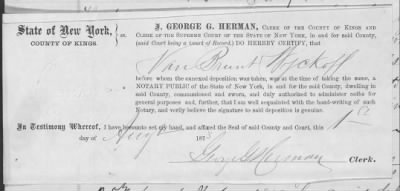 State of New York,
COUNTY OF KINGS.
I, GEORGE G. HERMAN, CLERK OF THE COUNTY OF KINGS and
CLERK OF THE SUPREME COURT OF THE STATE OF NEW YORK, in and for said County,
(said Court being a Court of Record) DO HEREBY CERTIFY, that
Van Brunt Wyckoff
before whom the annexed deposition was taken, was at the time of taking the same, a
NOTARY PUBLIC of the State of New York, in and for said County, dwelling in
said County, commissioned and sworn, and duly authorized to administer oaths for
general purposes and, further, that I am well acquainted with the hand-writing of such
Notary, and verily believe the signature to said deposition is genuine.
In Testimony Whereof, I have hereunto set my hand, and affixed the Seal of said County and Court, this 1st
day of Aug 187
George G Herman Clerk.